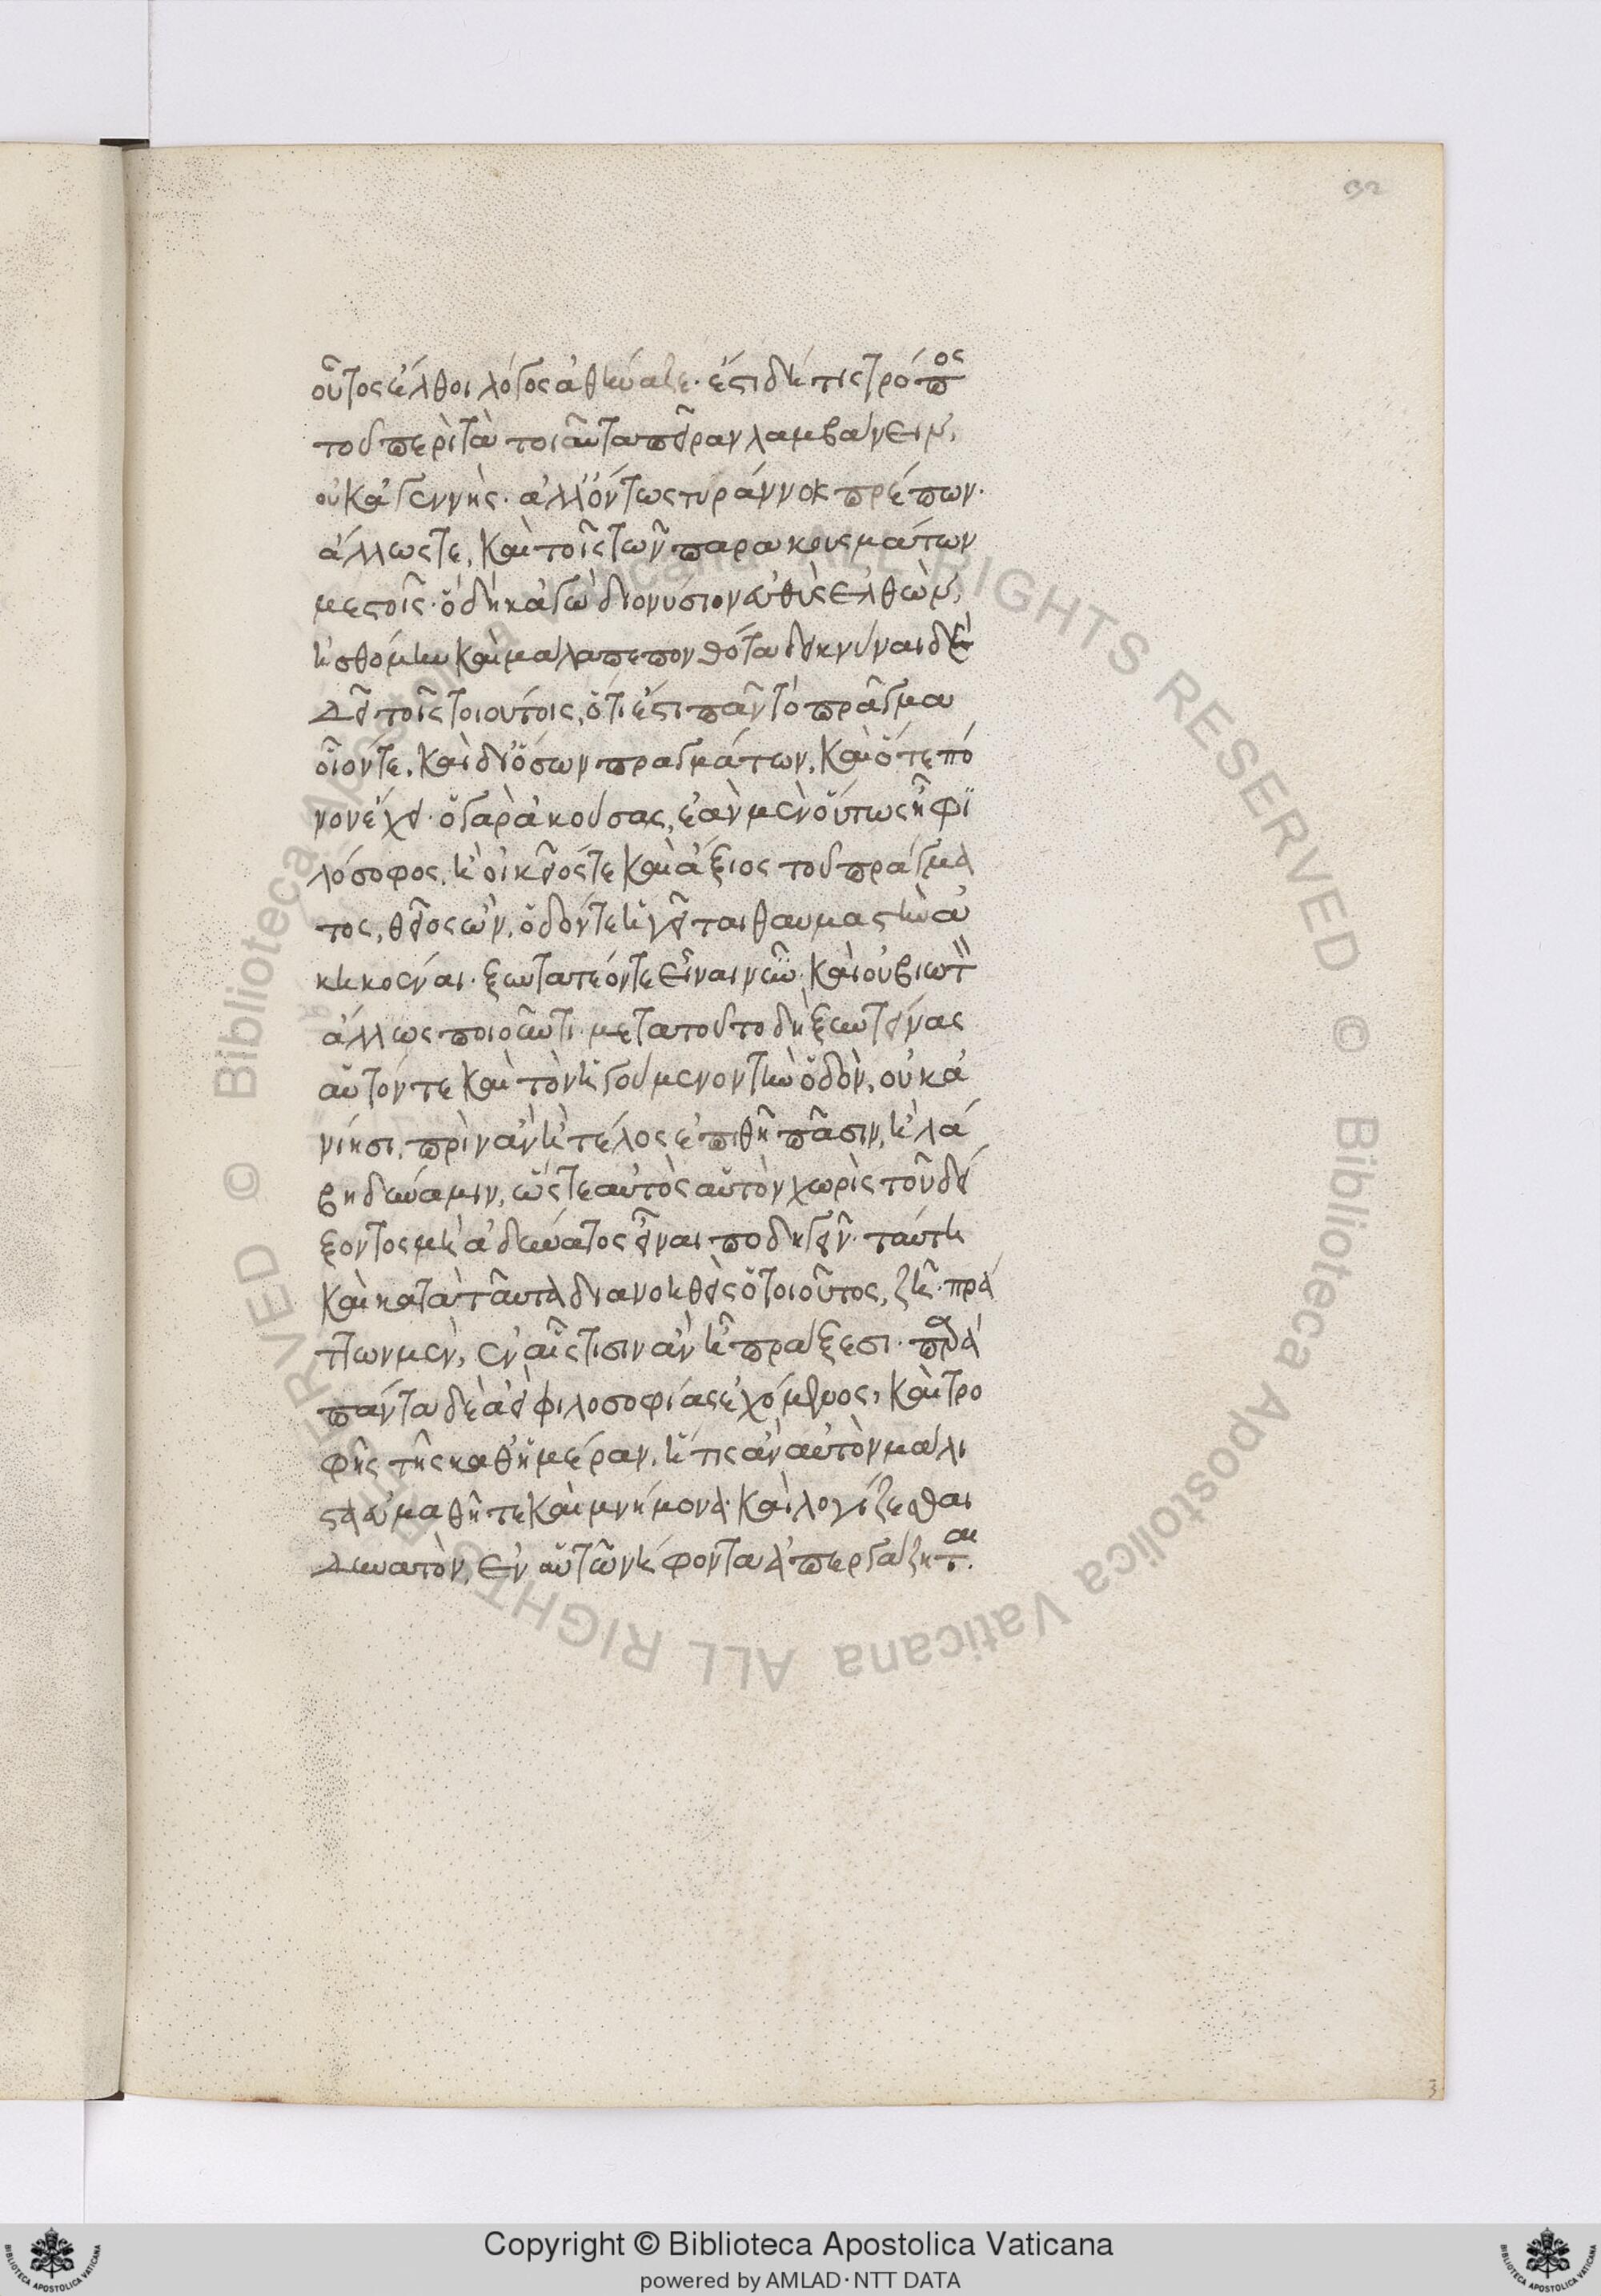 92
οὗτος ἔλθοι λόγος ἀθήναζε· ἔστι δή τις τρόπος
τοῦ περὶ τὰ τοιαῦτα πεῖραν λαμβάνειν,
οὐκ ἀγεννής· ἀλλ' ὄντως τυράννοις πρέπων·
ἄλλως τε, καὶ τοῖς τῶν παρακουσμάτων
μεστοῖς· ὃ δὴ κἀγὼ διονύσιον εὐθὺς ἐλθὼν,
ἠσθόμην καὶ μάλα πεπονθότα δεικνύναι δὲ
δεῖ τοῖς τοιούτοις, ὅτι ἔστι πᾶν τὸ πρᾶγμα
οἷόν τε, καὶ δι' ὅσων πραγμάτων, καὶ ὅτε πό
νον ἔχει· ὁ γὰρ ἀκούσας, ἐὰν μὲν οὕπως ἦ φι
λόσοφος, ἢ οἰκεῖός τε καὶ ἄξιος τοῦ πράγμα
τος, θεῖος ὢν, ὁδόν τε ἡγεῖται θαυμαστὴν ἀ
κηκοέναι· ξυντατέον τε εἶναι νῦν· καὶ οὐ βιωτὸν
ἄλλως ποιοῦντι· μετὰ τοῦτο δὴ ξυντείνας
αὑτόν τε καὶ τὸν ἡγούμενον τὴν ὁδὸν, οὐκ ἀ
νίησι, πρὶν ἂν ἢ τέλος ἐπιθῆ πᾶσιν, ἢ λά
βη δύναμιν, ὥστε αὐτὸς αὑτὸν χωρὶς τοῦ δεί
ξοντος μὴ ἀδύνατος εἶναι ποδηγεῖν· ταύτη
καὶ κατὰ ταῦτα διανοηθεὶς ὁ τοιοῦτος, ζῆ· πρά
ττων μὲν, ἐν αἷς τισιν ἂν ἦ πράξεσι· παρὰ
πάντα δὲ ἀεὶ φιλοσοφίας ἐχόμενος, καὶ τρο
φῆς τῆς καθ' ἡμέραν, ἥ τις ἂν αὐτὸν μάλι
στα εὐμαθῆ τε καὶ μνήμονα· καὶ λογίζεσθαι
δυνατὸν, ἐν αὑτῶ νήφοντα ἀπεργάζηται.
Copyright © Biblioteca Apostolica Vaticana
powered by AMLAD·NTT DATA